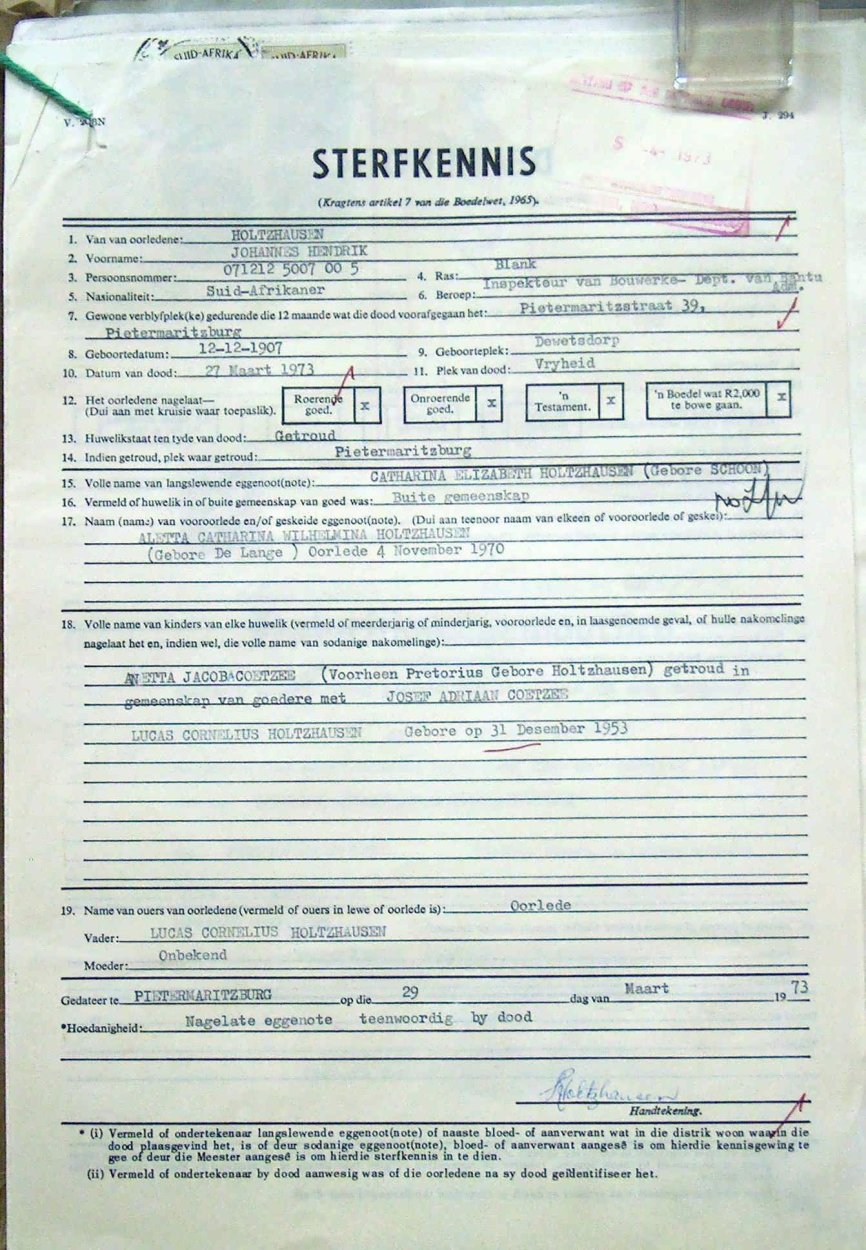 SUID-AFRIKA SUID-AFRIKA
V. 208N
J. 294
S -4- 1973
STERFKENNIS
(Kragtens artikel 7 van die Boedelwet, 1965).
1. Van van oorledene: HOLTZHAUSEN
2. Voorname: JOHANNES HENDRIK
3. Persoonsnommer: 071212 5007 00 5 4. Ras: Blank
5. Nasionaliteit: Suid-Afrikaner 6. Beroep: Inspekteur van Bouwerke- Dept. van Bantu Adm.
7. Gewone verblyfplek(ke) gedurende die 12 maande wat die dood voorafgegaan het: Pietermaritzstraat 39,
Pietermaritzburg
8. Geboortedatum: 12-12-1907 9. Geboorteplek: Dewetsdorp
10. Datum van dood: 27 Maart 1973 11. Plek van dood: Vryheid
12. Het oorledene nagelaat— (Dui aan met kruisie waar toepaslik). Roerende goed. x Onroerende goed. x 'n Testament. x 'n Boedel wat R2,000 te bowe gaan. x
13. Huwelikstaat ten tyde van dood: Getroud
14. Indien getroud, plek waar getroud: Pietermaritzburg
15. Volle name van langslewende eggenoot(note): CATHARINA ELIZABETH HOLTZHAUSEN (Gebore SCHOON)
16. Vermeld of huwelik in of buite gemeenskap van goed was: Buite gemeenskap
17. Naam (name) van vooroorlede en/of geskeide eggenoot(note). (Dui aan teenoor naam van elkeen of vooroorlede of geskei):
ALETTA CATHARINA WILHELMINA HOLTZHAUSEN
(Gebore De Lange ) Oorlede 4 November 1970
18. Volle name van kinders van elke huwelik (vermeld of meerderjarig of minderjarig, vooroorlede en, in laasgenoemde geval, of hulle nakomelinge
nagelaat het en, indien wel, die volle name van sodanige nakomelinge):
ANETTA JACOBA COETZEE (Voorheen Pretorius Gebore Holtzhausen) getroud in
gemeenskap van goedere met JOSEF ADRIAAN COETZEE
LUCAS CORNELIUS HOLTZHAUSEN Gebore op 31 Desember 1953
19. Name van ouers van oorledene (vermeld of ouers in lewe of oorlede is): Oorlede
Vader: LUCAS CORNELIUS HOLTZHAUSEN
Moeder: Onbekend
Gedateer te PIETERMARITZBURG op die 29 dag van Maart 19 73
*Hoedanigheid: Nagelate eggenote teenwoordig by dood
Holtzhausen
Handtekening.
* (i) Vermeld of ondertekenaar langslewende eggenoot(note) of naaste bloed- of aanverwant wat in die distrik woon waarin die
dood plaasgevind het, is of deur sodanige eggenoot(note), bloed- of aanverwant aangesê is om hierdie kennisgewing te
gee of deur die Meester aangesê is om hierdie sterfkennis in te dien.
(ii) Vermeld of ondertekenaar by dood aanwesig was of die oorledene na sy dood geïdentifiseer het.